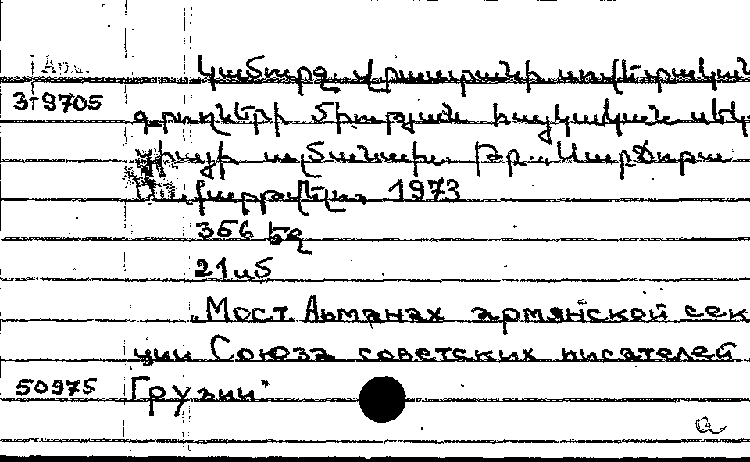 Арм.
Կամուրջ. Վրաստանի սովետական
3-9705
գրողների միության հայկական սեկ
ցիայի ալմանախ. Թբ., „Սաբճոթա
Սաքարթվելո„, 1973
356 էջ
21 սմ
„Мост. Альманах армянской сек
ции Союза советских писателей
50975 Грузии"
a